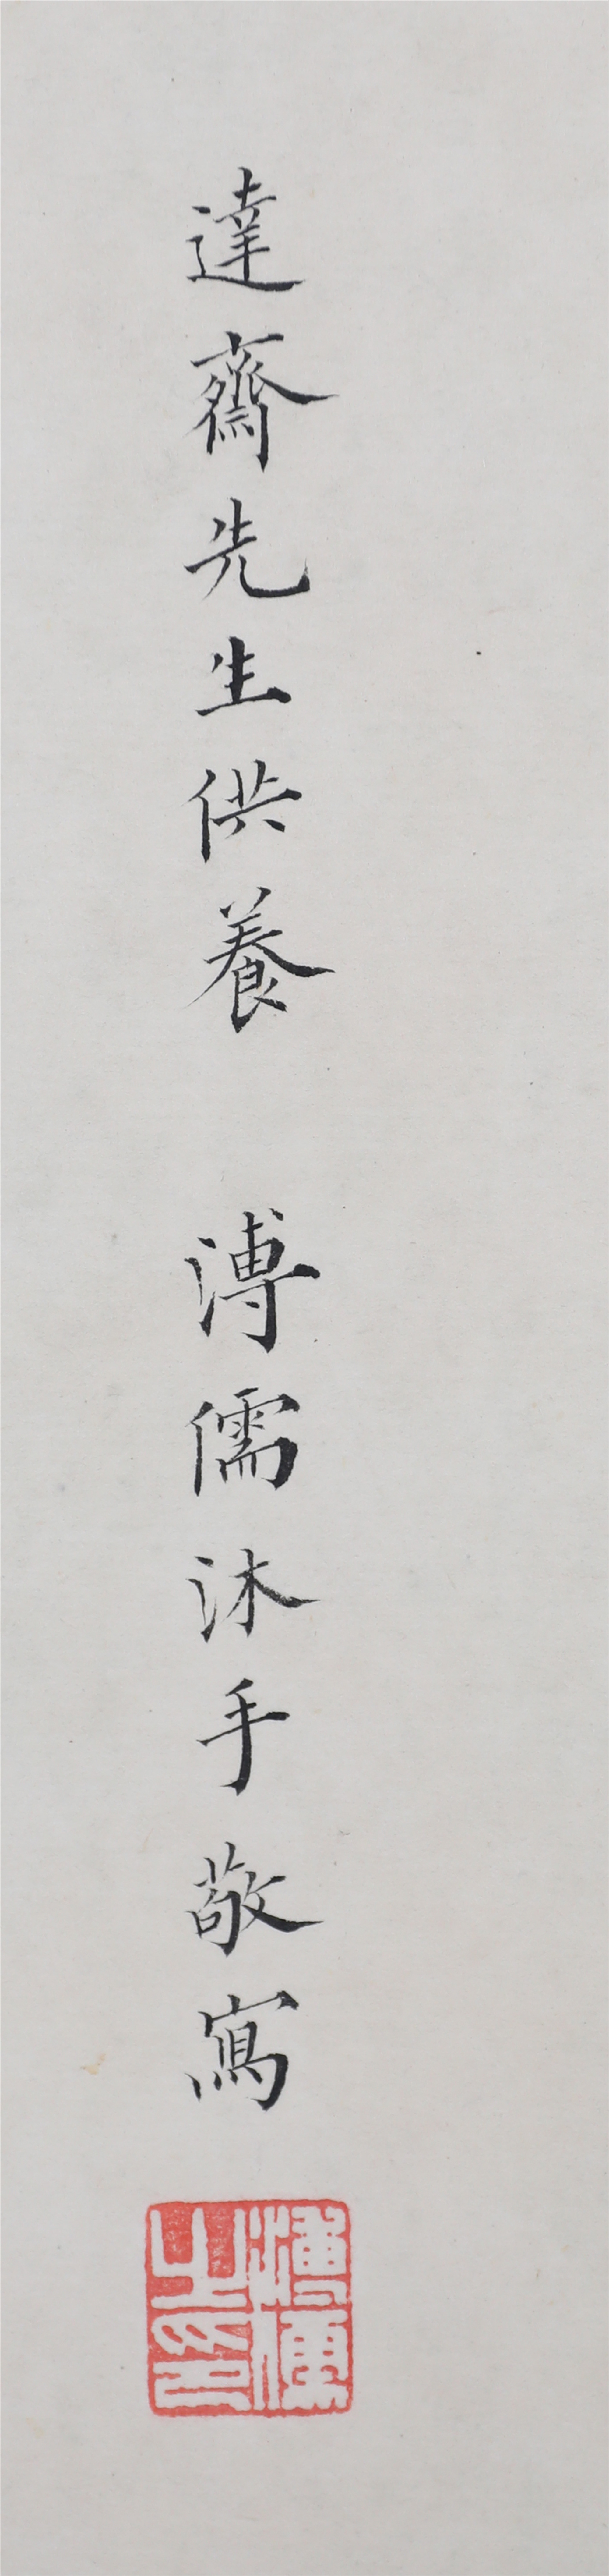 達齋先生供養 溥儒沐手敬寫
溥儒之印